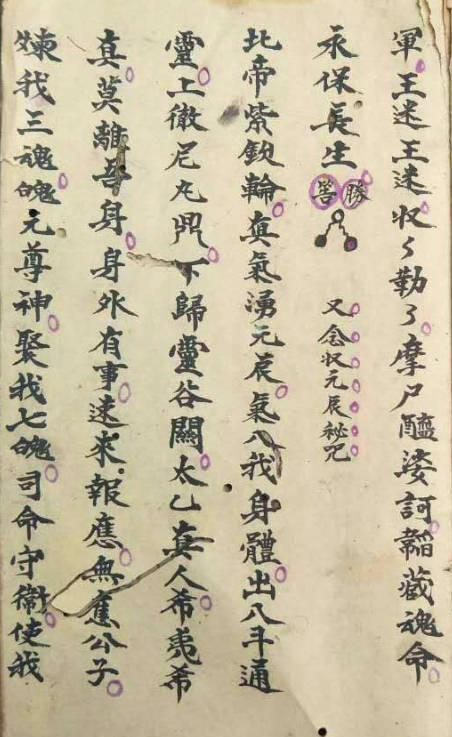 軍王迷王迷収々勒了摩尸醯娑訶韜藏魂命
永保長生 筶勝 又念収元辰秘咒
北帝紫欽輪真氣湧元辰氣入我身體出八斗通
靈上徹尼丸門下歸靈谷關太乙真人希夷希
真莫離吾身身外有事速來報應無應公子
煉我三魂魄元尊神聚我七魄司命守衛使我